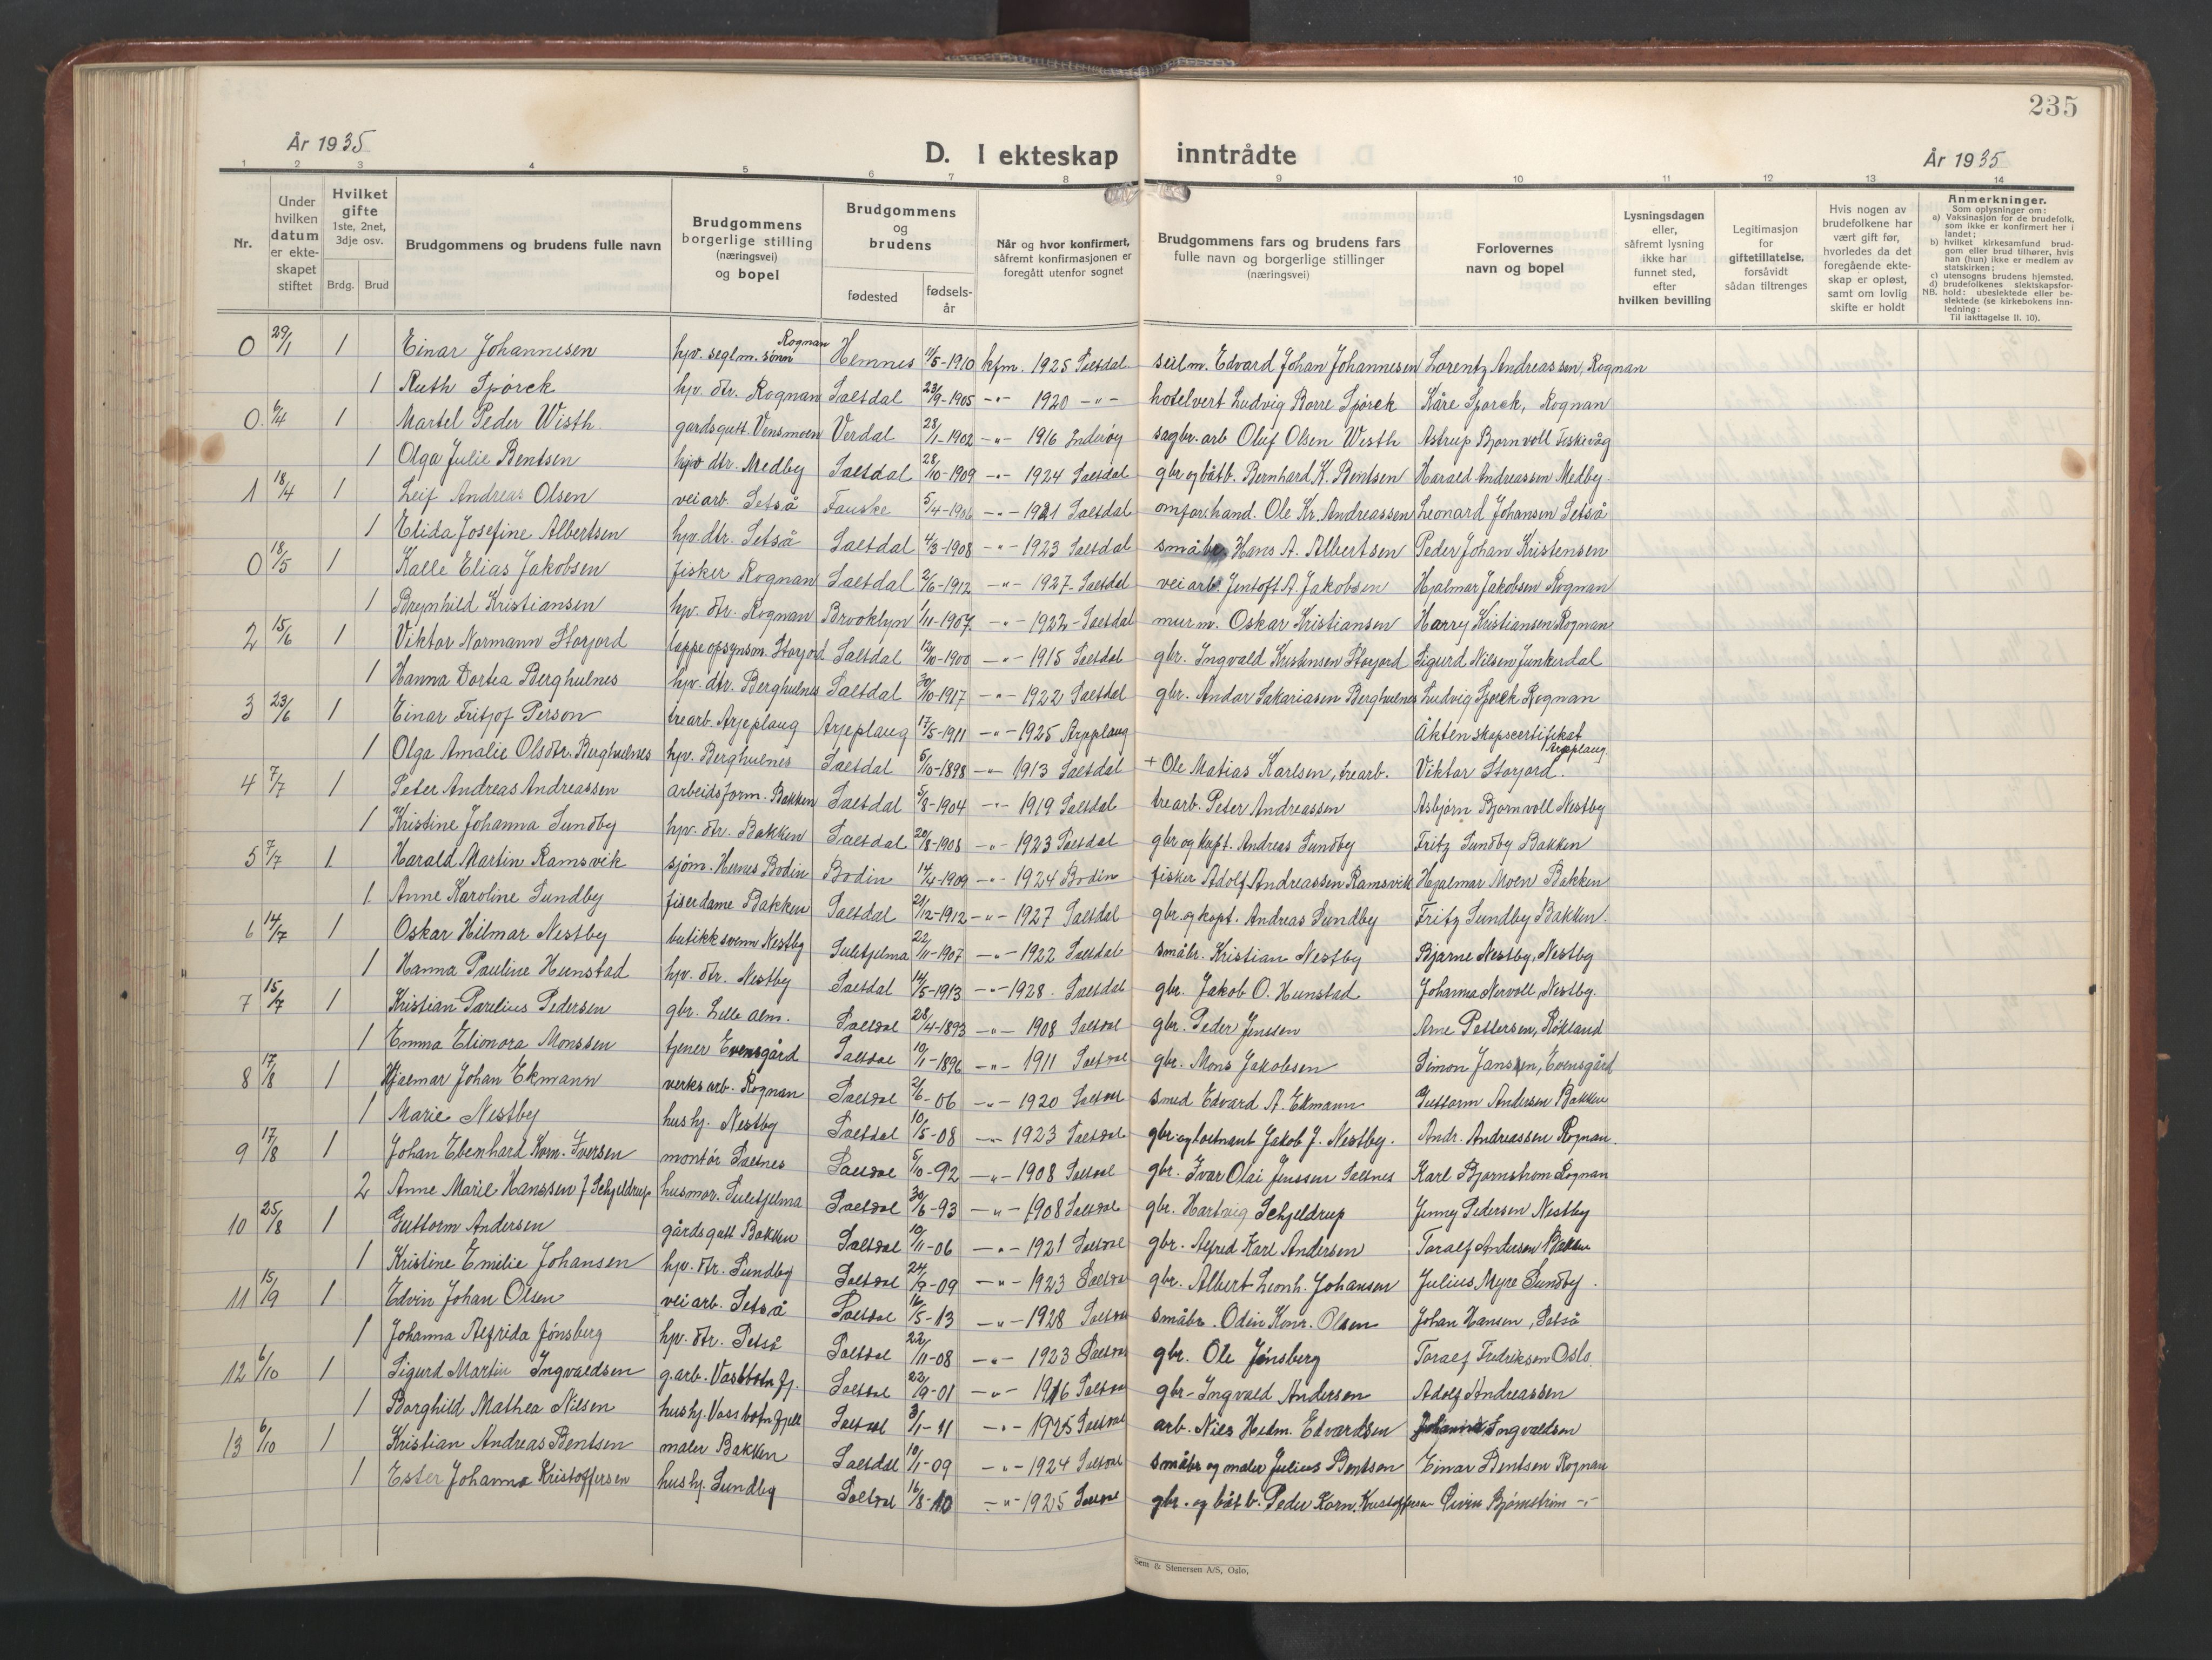 235
År 1935
D. I ekteskap inntrådte
År 1935
1 2 3 4 5 6 7 8 9 10 11 12 13 14
Nr.
Under hvilken datum er ekteskapet stiftet
Hvilket gifte 1ste, 2net, 3dje osv.
Brdg. Brud
Brudgommens og brudens fulle navn
Brudgommens borgerlige stilling (næringsvei) og bopel
Brudgommens og brudens
fødested fødselsår
Når og hvor konfirmert, såfremt konfirmasjonen er foregått utenfor sognet
Brudgommens fars og brudens fars fulle navn og borgerlige stillinger (næringsvei)
Forlovernes navn og bopel
Lysningsdagen eller, såfremt lysning ikke har funnet sted, efter hvilken bevilling
Legitimasjon for giftetillatelse, forsåvidt sådan tiltrenges
Hvis nogen av brudefolkene har vært gift før, hvorledes da det foregående ekteskap er opløst, samt om lovlig skifte er holdt
Anmerkninger.
Som oplysninger om:
a) Vaksinasjon for de brudefolk, som ikke er konfirmert her i landet;
b) hvilket kirkesamfund brudgom eller brud tilhører, hvis han (hun) ikke er medlem av statskirken;
c) utensogns brudens hjemsted.
d) brudefolkenes slektskapsforhold: ubeslektede eller beslektede (se kirkebokens innledning:
NB. Til iakttagelse II. 10).
0 29/1 1 Einar Johannesen hjv. seglm. sønn Rognan Hemnes 11/5-1910 kfm. 1925 Saltdal seilm. Edvard Johan Johannesen Lorentz Andreassen, Rognan
1 Ruth Spørck hjv. dtr. Rognan Saltdal 23/9-1905 -"- 1920 -"- hotelvert Ludvig Borre Spörck Kåre Spørck, Rognan
0 6/4 1 Martel Peder Wisth gardsgutt. Vensmoen Verdal 28/1-1902 -"- 1916 Inderøy sagbr. arb Oluf Olsen Wisth Astrup Bjørnvoll Fiskvåg
1 Olga Julie Bentsen hjv dtr. Medby Saltdal 28/10-1909 -"- 1924 Saltdal gbr og båtb. Bernhard K. Bentsen Harald Andreassen Medby
1 18/4 1 Leif Andreas Olsen veiarb Setså Fauske 5/4-1906 -"- 1921 Saltdal omfar. hand. Ole Kr. Andreassen Leonard Johansen Setså
1 Elida Josefine Albertsen hjv. dtr. Setså Saltdal 4/3-1908 -"- 1923 Saltdal småbr. Hans A. Albertsen Peder Johan Kristensen
0 18/5 1 Kalle Elias Jakobsen fisker Rognan Saltdal 2/6-1912 -"- 1927 Saltdal veiarb. Jentoft A. Jakobsen Hjalmar Jakobsen Rognan
1 Brynhild Kristiansen hjv. dtr. Rognan Brooklyn 1/11-1907 -"- 1922 Saltdal murm. Oskar Kristiansen Harry Kristiansen Rognan
2 15/6 1 Viktor Normann Storjord lappeopsynsm. Storjord Saltdal 12/10-1900 -"- 1915 Saltdal gbr. Ingvald Kristensen Storjord Sigurd Nilsen Junkerdal
1 Hanna Dortea Berghulnes hjv. dtr. Berghulnes Saltdal 30/10-1907 -"- 1922 Saltdal gbr. Andor Sakariasen Berghulnes Ludvig Spørck Rognan
3 23/6 1 Einar Fritjof Person trearb. Arjeplaug Arjeplaug 17/5-1911 -"- 1925 Arjeplaug Äktenskapscertifikat Arjeplaug
1 Olga Amalie Olsdtr. Berghulnes hjv. Berghulnes Saltdal 5/10-1898 -"- 1913 Saltdal + Ole Matias Karlsen, trearb. Viktor Storjord.
4 7/7 1 Peter Andreas Andreassen arbeidsform. Bakken Saltdal 5/8-1904 -"- 1919 Saltdal trearb. Peter Andreassen Asbjørn Bjørnvoll Nestby
1 Kristine Johanna Sundby hjv. dtr. Bakken Saltdal 20/8-1908 -"- 1923 Saltdal gbr og kapt. Andreas Sundby Fritz Sundby Bakken
5 7/7 1 Harald Martin Ramsvik sjøm. Hernes Bodin Bodin 14/4-1909 -"- 1924 Bodin fisker Adolf Andreassen Ramsvik Hjalmar Moen Bakken
1 Anne Karoline Sundby fiserdame Bakken Saltdal 21/12-1912 -"- 1927 Saltdal gbr. og kapt. Andreas Sundby Fritz Sundby Bakken
6 14/7 1 Oskar Hilmar Nestby butikksvenn Nestby Sulitjelma 22/11-1907 -"- 1922 Saltdal småbr. Kristian Nestby Bjarne Nestby, Nestby
1 Hanna Pauline Hunstad hjv. dtr. Nestby Saltdal 14/5-1913 -"- 1928 Saltdal gbr. Jakob O. Hunstad Johanna Nervoll, Nestby.
7 15/7 1 Kristian Parelius Pedersen gbr. Lille Alm. Saltdal 28/4-1893 -"- 1908 Saltdal gbr. Peder Jenssen Arne Pettersen, Røkland
1 Emma Elionora Monssen tjener Evensgård Saltdal 10/1-1896 -"- 1911 Saltdal gbr. Mons Jakobsen Simon Janssen, Evensgård
8 17/8 1 Hjalmar Johan Ekmann verksarb. Rognan Saltdal 2/6-06 -"- 1920 Saltdal smed Edvard A. Ekmann Guttorm Andersen Bakken
1 Marie Nestby hushj. Nestby Saltdal 10/5-08 -"- 1923 Saltdal gbr. og loitnant Jakob J. Nestby. Andr. Andreassen Rognan.
9 17/8 1 Johan Ebenhard Korn. Iversen montør Saltnes Saltdal 5/10-92 -"- 1908 Saltdal gbr. Ivar Olai Jenssen Saltnes Karl Bjørnstrøm Rognan
2 Anne Marie Hanssen f Schjeldrup husmor. Sulitjelma Saltdal 30/6-93 -"- 1908 Saltdal gbr. Hartvig Schjeldrup Jenny Pedersen Nestby
10 25/8 1 Guttorm Andersen gårdsgutt Bakken Saltdal 10/11-06 -"- 1921 Saltdal gbr. Alfred Karl Andersen Toralf Andersen Bakken
1 Kristine Emilie Johansen hjv. dtr. Sundby Saltdal 24/9-09 -"- 1923 Saltdal gbr. Albert Leonh. Johansen Julius Myre Sundby.
11 15/9 1 Edvin Johan Olsen veiarb. Setså Saltdal 16/5-13 -"- 1928 Saltdal småbr. Odin Konr. Olsen Johan Hansen, Setså
1 Johanna Alfrida Jónsberg hjv. dtr. Setså Saltdal 22/11-08 -"- 1923 Saltdal gbr. Ole Jónsberg Toralf Fredriksen Oslo.
12 6/10 1 Sigurd Martin Ingvaldsen g.arb. Vassbotn fj. Saltdal 22/9-01 -"- 1916 Saltdal gbr. Ingvald Andersen Adolf Andreassen
1 Borghild Mathea Nilsen hushj. Vassbotn fjell Saltdal 3/1-11 -"- 1925 Saltdal arb. Nils Hedm. Edvardsen Ingvaldsen
13 6/10 1 Kristian Andreas Bentsen maler Bakken Saltdal 10/1-09 -"- 1924 Saltdal småbr og maler Julius Bentsen Einar Bentsen Rognan
1 Ester Johanna Kristoffersen hushj. Sundby Saltdal 16/8-10 -"- 1925 Saltdal gbr. og båtb. Peder Korn. Kristoffersen Bjørnstrøm -"-
Sem & Stenersen A/S, Oslo.